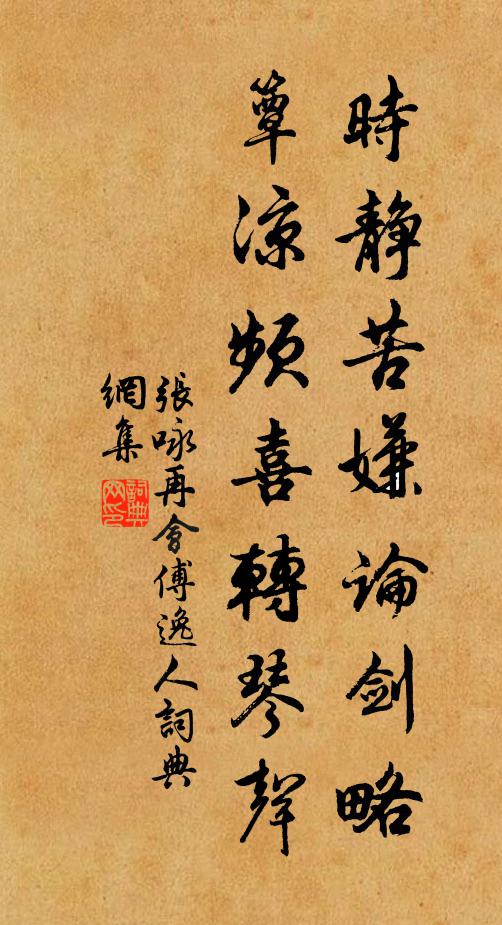 時靜苦嫌論劍略
簟涼頻喜轉琴聲
張咏再會傅逸人詞典
網集
詞典
網印